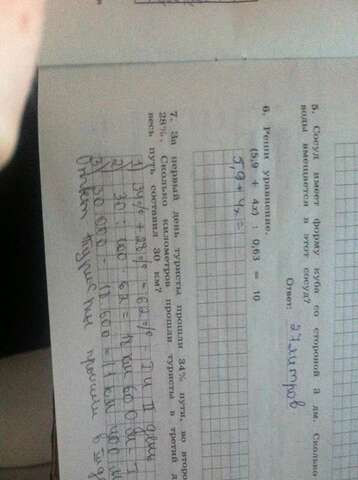 5. Сосуд имеет форму куба со стороной 3 дм. Сколько
воды вмещается в этот сосуд?
Ответ: 27 литров
6. Реши уравнение.
(5,9 + 4x) : 0,63 = 10
5,9 + 4x =
7. За первый день туристы прошли 34% пути, во второ
28%. Сколько километров прошли туристы в третий д
весь путь составил 30 км?
1) 34% + 28% = 62% I и II день
2) 30 : 100 · 62 = 18 км 600
3) 30 000 - 18 600 = 11 км 400 м
туристы прошли в III